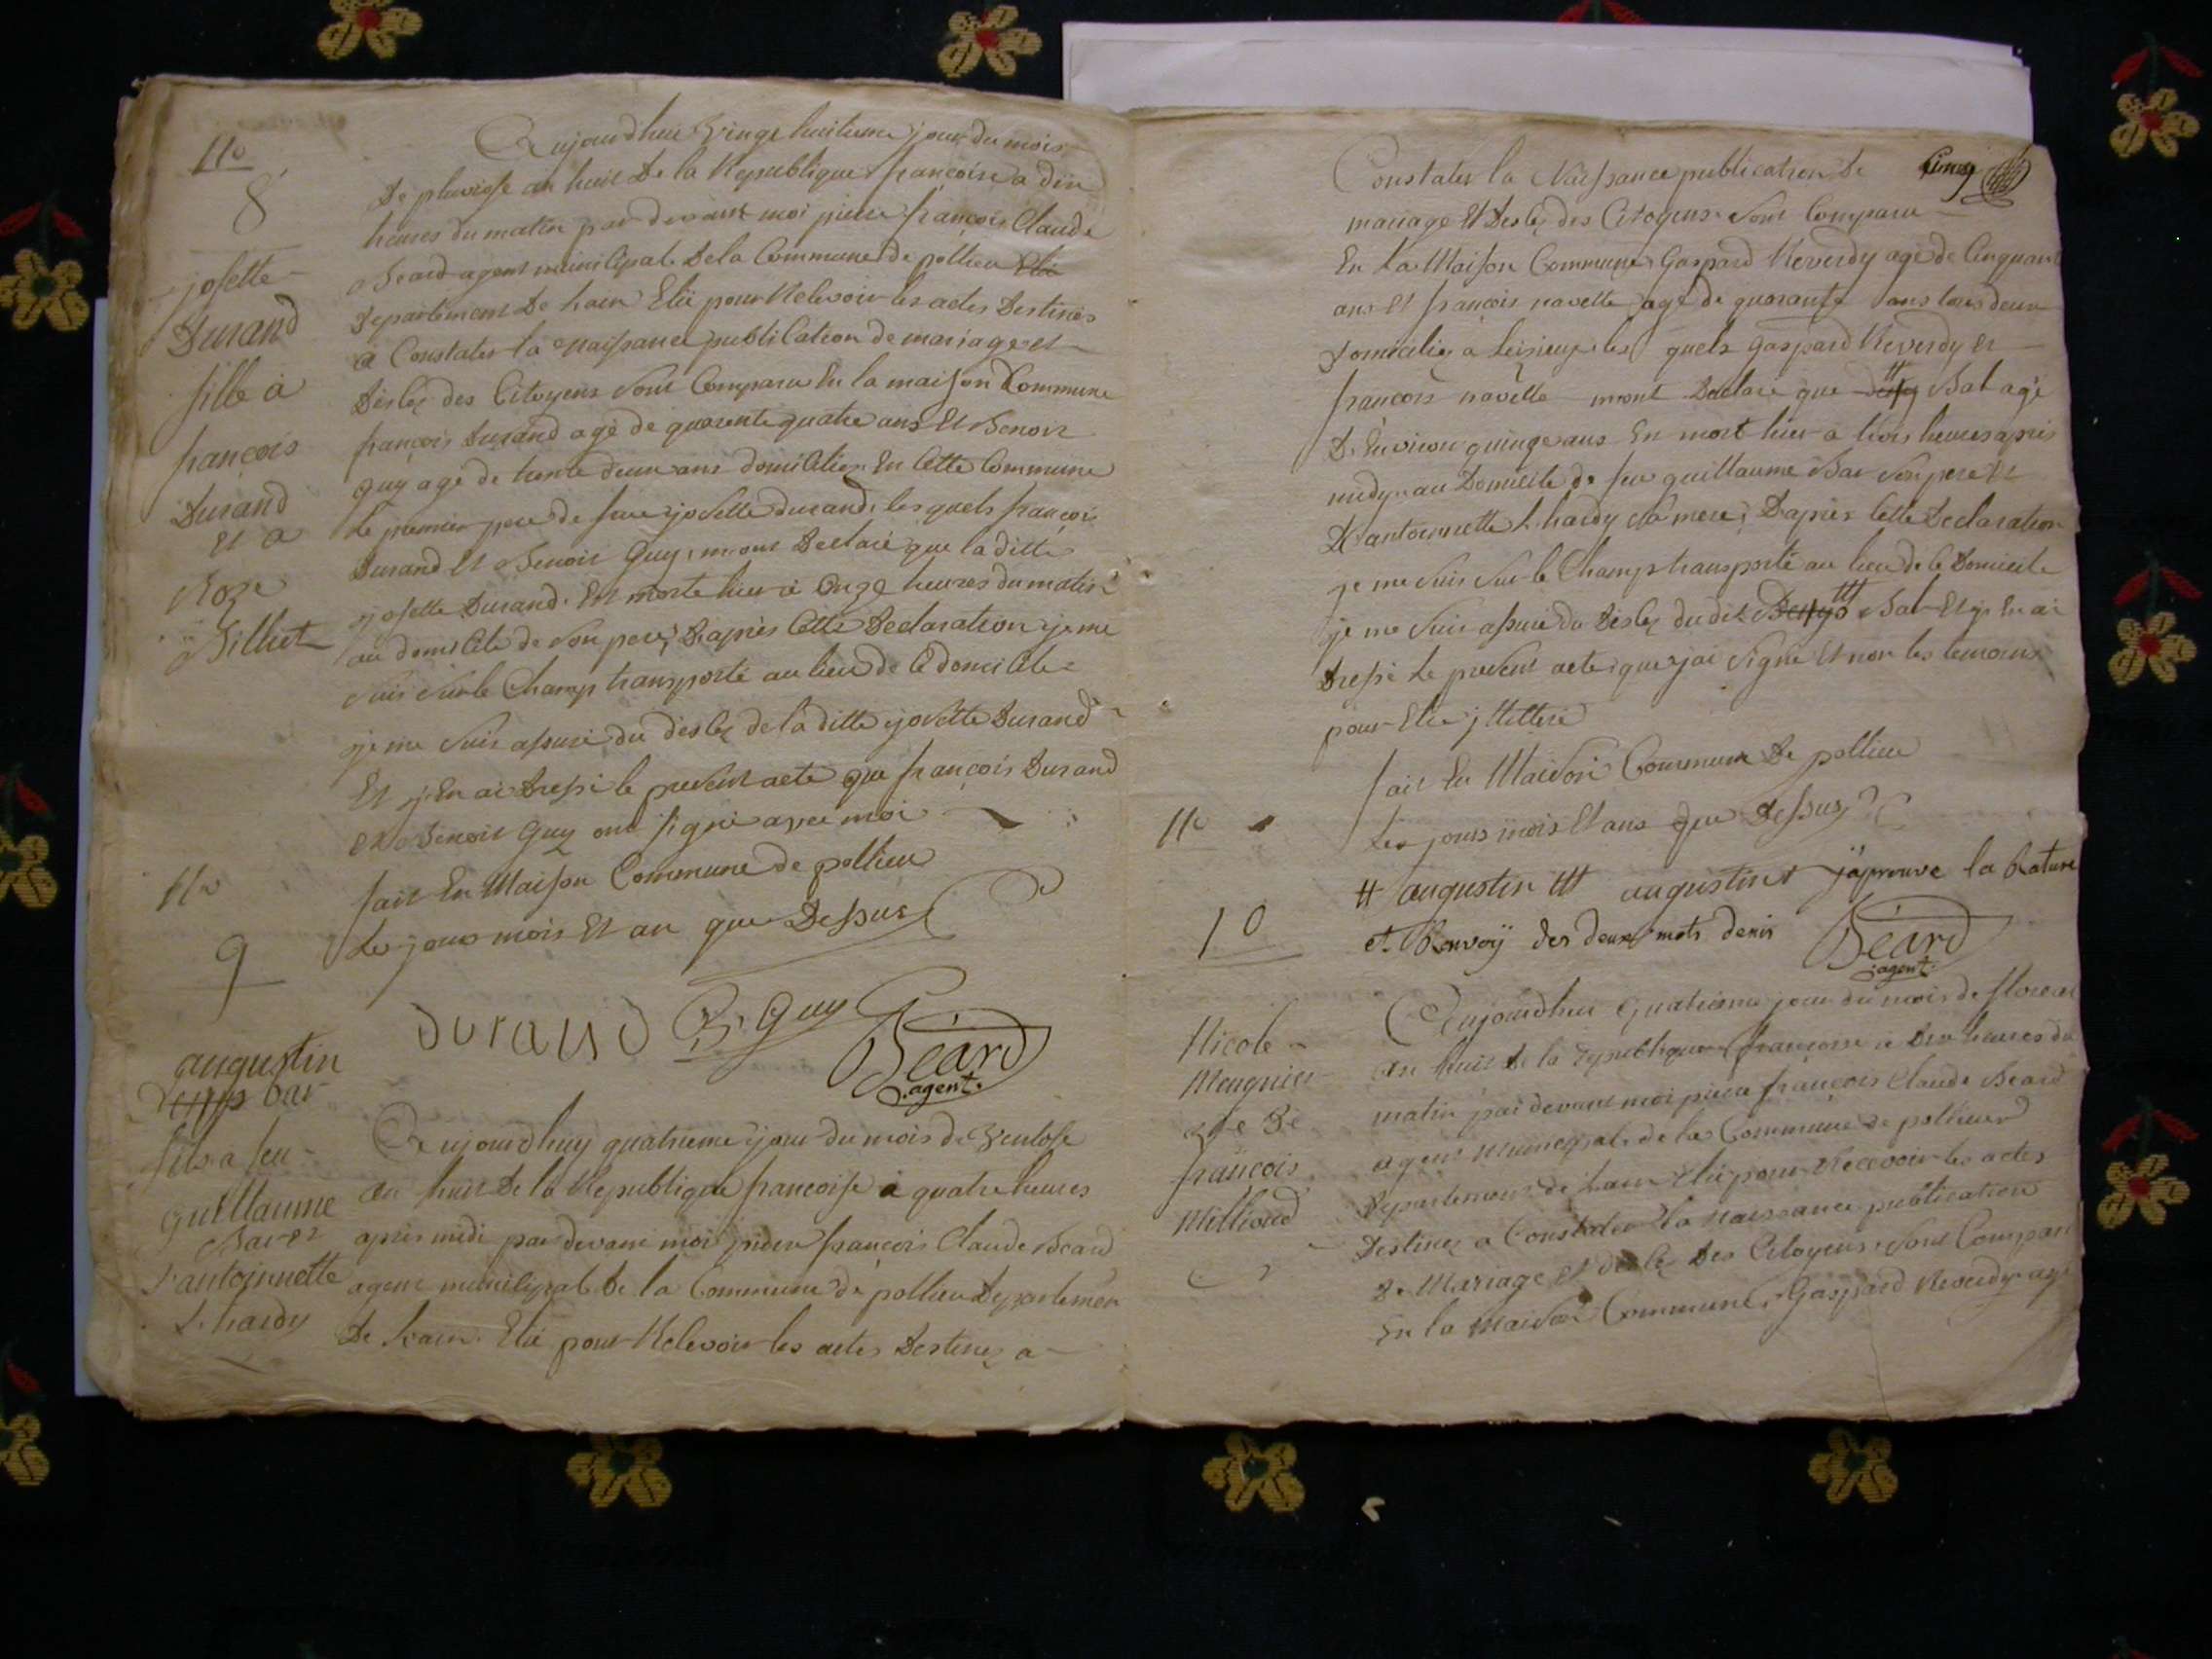 No
8
josette
Durand
fille a
françois
Durand
et a
Roze
Billiet
Aujourdhui vingt huitieme jour du mois
de pluviose an huit de la Republique françoise a dix
heures du matin par devant moi pierre françois Claude
Béard agent municipal de la Commune de pollieu
departement de lain Elû pour Recevoir les actes Destinés
a Constater la naissance publication de mariage et
Déslez des Citoyens sont Comparu En la maison Commune
françois Durand agé de quarente quatre ans Et Benoit
Guy agé de trente deux ans domiciliez En Cette Commune
le premier pere de feue josette durand, les quels françois
Durand Et Benoit Guy, mont Declaré que la ditte
josette Durand Est morte hier à Onze heures du matin
au domicile de son pere, Daprès Cette Declaration je me
suis sur le Champ transporté au lieu de Ce domicile
je me suis assuré du deslez de la ditte josette Durand
Et j'En ai Dressé le present acte que françois Durand
Et Benoit Guy ont signé avec moi
fait En Maison Commune de pollieu
Les jour mois Et an que Dessus
durand B. Guy Béard
agent.
No
9
augustin
bar
fils a feu
guillaume
Bar et
d'antoinnette
L'hardy
Aujourdhuy quatrieme jour du mois de Ventose
an huit de la Republique françoise à quatre heures
après midi par devant moi pierre françois Claude Beard
agent municipal de la Commune de pollieu Departemen
de lain Elû pour Recevoir les actes Destinez a
Constater la Naissance publication de
mariage Et Deslez des Citoyens sont Comparu
En La Maison Commune Gaspard Reverdy agé de Cinquant
ans Et françois navette agé de quarante ans tous deux
domiciliez a les quels Gaspard Reverdy Et
françois navette mont Declaré que # Bal agé
D'Environ quinze ans En mort hier a trois heures après
midy au Domicile de feu guillaume Bar son pere Et
D'antoinnette L'hardy sa mere, Daprès Cette Declaration
je me suis sur le Champ transporté au lieu de Ce Domicile
je me suis assuré du Deslez du dit Bal Et j'En ai
Dressé le present acte que jai signé Et non les temoins
pour Etre jlletteré
fait En Maison Commune De pollieu
Les jours mois Et ans que Dessus
# augustin augustin j'aprouve la Rature
et Renvoÿ des deux mots denis Béard
agent.
No
10
Nicole
Meugnier
vve de
françois
Millioud
Aujourdhui quatrieme jour du mois de floreal
an huit de la republique françoise a Dix heures du
matin par devant moi pierre françois Claude Beard
agent Municipal de la Commune de pollieu
Departement de lain Elû pour Recevoir les actes
Destinez a Constater la Naissance publication
De Mariage et deslez Des Citoyens sont Compari
En la Maison Commune, Gaspard Reverdy agé